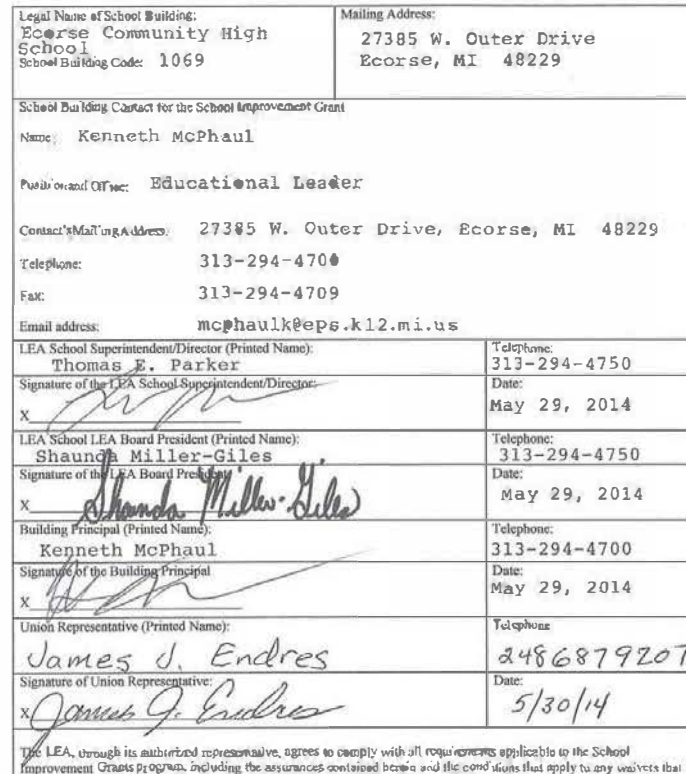 Legal Name of School Building:
Ecorse Community High
School
School Building Code: 1069
Mailing Address:
27385 W. Outer Drive
Ecorse, MI 48229
School Building Contact for the School Improvement Grant
Name: Kenneth McPhaul
Position and Office: Educational Leader
Contact's Mailing Address: 27385 W. Outer Drive, Ecorse, MI 48229
Telephone: 313-294-4700
Fax: 313-294-4709
Email address: mcphaulk@eps.k12.mi.us
LEA School Superintendent/Director (Printed Name):
Thomas E. Parker
Telephone:
313-294-4750
Signature of the LEA School Superintendent/Director:
X
Date:
May 29, 2014
LEA School LEA Board President (Printed Name):
Shaunda Miller-Giles
Telephone:
313-294-4750
Signature of the LEA Board President
X Shaunda Miller-Giles
Date:
May 29, 2014
Building Principal (Printed Name):
Kenneth McPhaul
Telephone:
313-294-4700
Signature of the Building Principal
X
Date:
May 29, 2014
Union Representative (Printed Name):
James J. Endres
Telephone
2486879207
Signature of Union Representative:
X James J. Endres
Date:
5/30/14
The LEA, through its authorized representative, agrees to comply with all requirements applicable to the School
Improvement Grants program, including the assurances contained herein and the conditions that apply to any waivers that